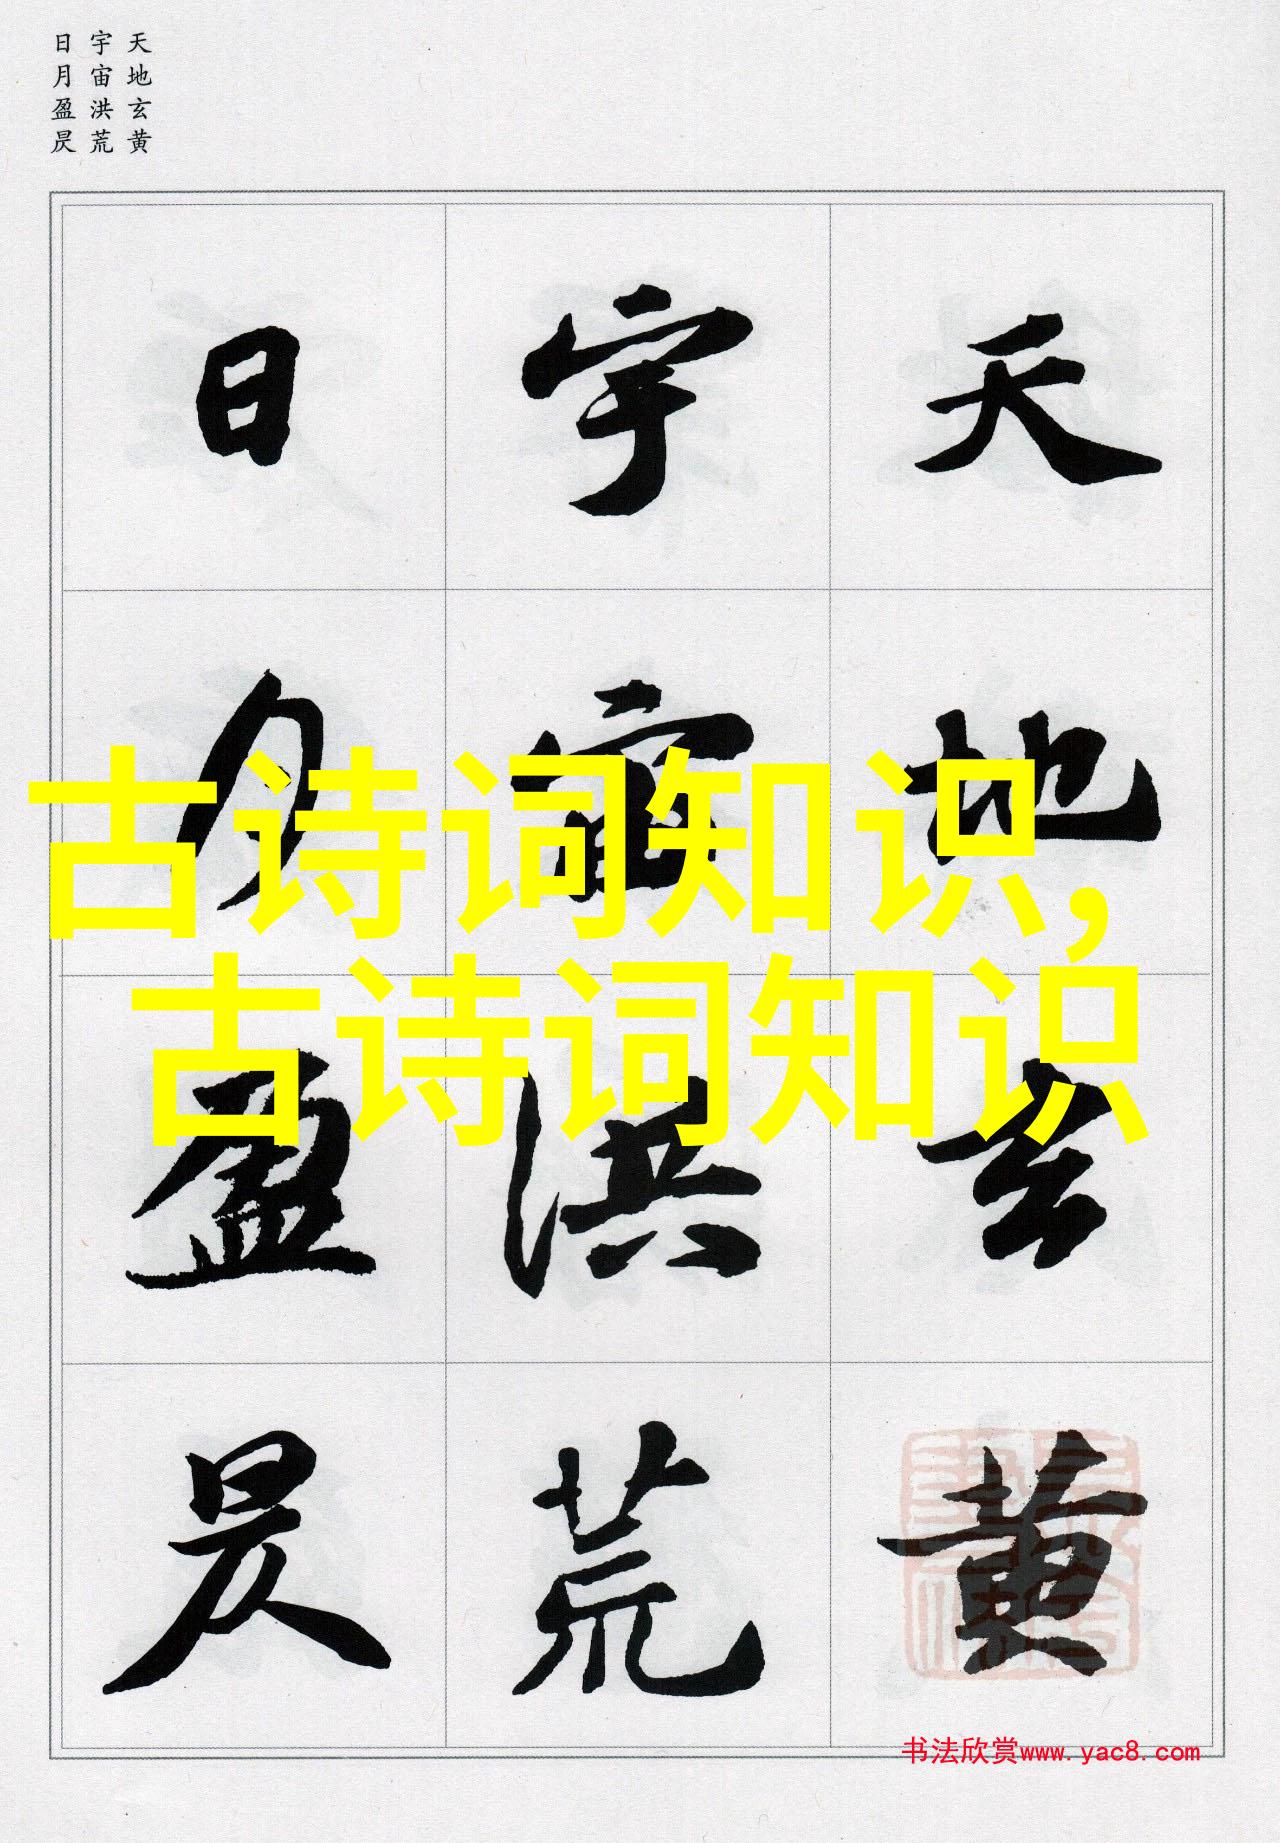 天地玄黄
宇宙洪荒
日月盈昃
天地玄黄
宇宙洪荒
日月盈昃
古诗词知识,
古诗词知识
书法欣赏www.yac8.com